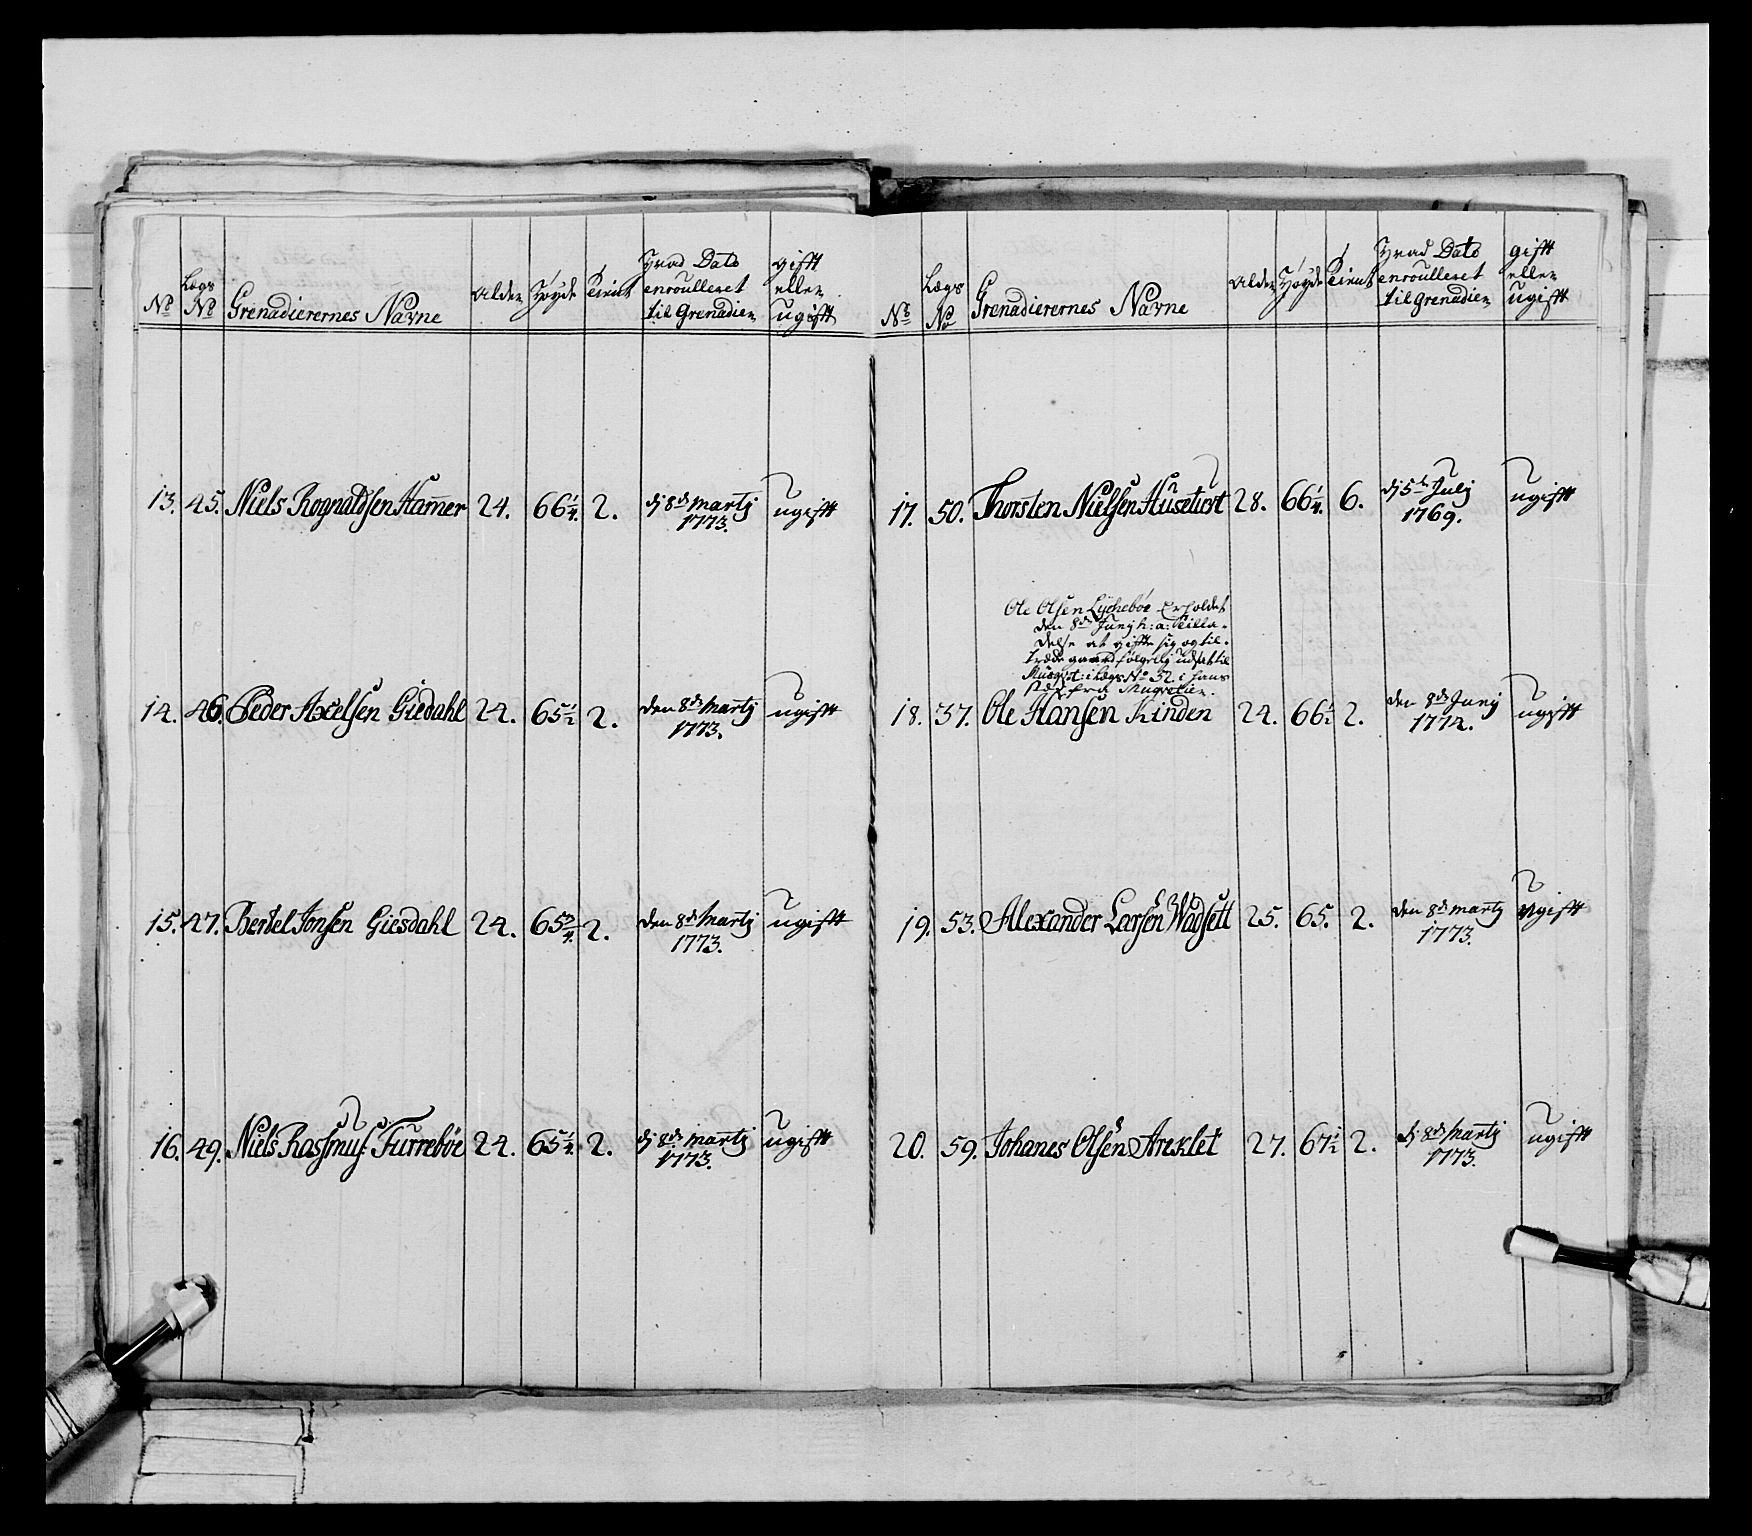 No
Lægs
No
Grenadierernes Navne
Alder
Høyde
Tient
Hvad Dato
enroulleret
til Grenadier
gift
eller
ugift
13.
45.
Niels Rognaldsen Hamer
24.
66 1/4.
2.
dj 8de Martj
1773.
ugift
14.
46.
Peder Axelsen Giedahl
24.
65 1/2
2.
den 8de Martj
1773.
ugift
15.
47.
Bertel Jonsen Giesdahl
24.
65 3/4.
2.
den 8de Martj
1773.
ugift
16.
49.
Niels Rassmus: Furrebøe
24.
65 1/4.
2.
dj 8de Martj
1773.
ugift
No
Lægs
No
Grenadierernes Navne
Alder
Høyde
Tient
Hvad Dato
enroulleret
til Grenadier
gift
eller
ugift
17.
50.
Thorsten Nielsen Husetuft
28.
66 1/4.
6.
dj 5te Julj
1769.
ugift
Ole Olsen Lychebøe Erholdet
den 8de Junj h: a: Tilla-
delse at gifte sig og til-
træde gaard følgelig udsat til
i Lægs No 52. i hans
Sted fra
18.
37.
Ole Hansen Kinden
24.
66 1/2
2.
den 8de Junj
1774.
ugift
19.
53.
Alexander Larsen Wadsett
25.
65.
2.
den 8de Martj
1773.
ugift
20.
59.
Johanes Olsen Areklet
27.
67 1/2
2.
dj 8de Martj
1773.
ugift